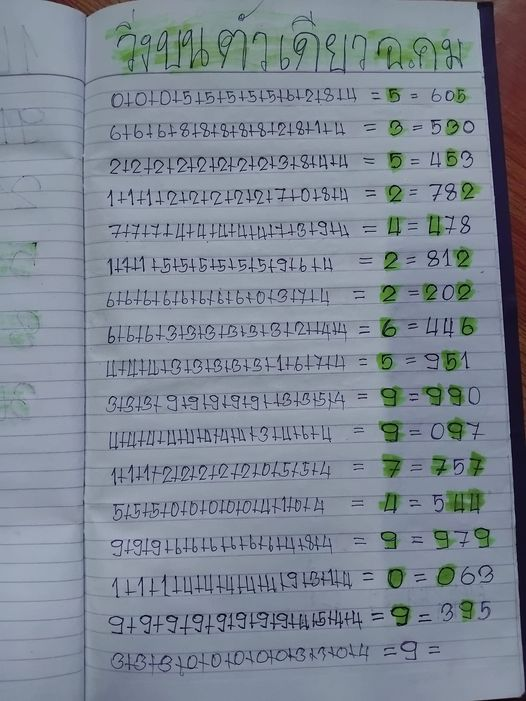 วิ่งบนตัวเดียว อ.คม
0+0+0+5+5+5+5+5+6+2+8+4 = 5 = 605
6+6+6+8+8+8+8+8+2+8+1+4 = 3 = 530
2+2+2+2+2+2+2+2+3+8+4+4 = 5 = 453
1+1+1+2+2+2+2+2+7+0+8+4 = 2 = 782
7+7+7+4+4+4+4+4+7+3+9+4 = 4 = 478
1+1+1+5+5+5+5+5+5+9+6+4 = 2 = 812
6+6+6+6+6+6+6+6+0+3+7+4 = 2 = 202
6+6+6+3+3+3+3+3+3+2+4+4 = 6 = 446
4+4+4+3+3+3+3+3+1+6+7+4 = 5 = 951
3+3+3+9+9+9+9+9+3+3+5+4 = 9 = 990
4+4+4+4+4+4+4+4+3+4+6+4 = 9 = 097
1+1+1+2+2+2+2+2+0+5+5+4 = 7 = 757
5+5+5+0+0+0+0+0+4+1+0+4 = 4 = 544
9+9+9+6+6+6+6+6+6+4+8+4 = 9 = 979
1+1+1+4+4+4+4+4+1+9+3+4 = 0 = 063
9+9+9+9+9+9+9+9+4+5+4+4 = 9 = 395
3+3+3+0+0+0+0+0+3+3+0+4 = 9 =